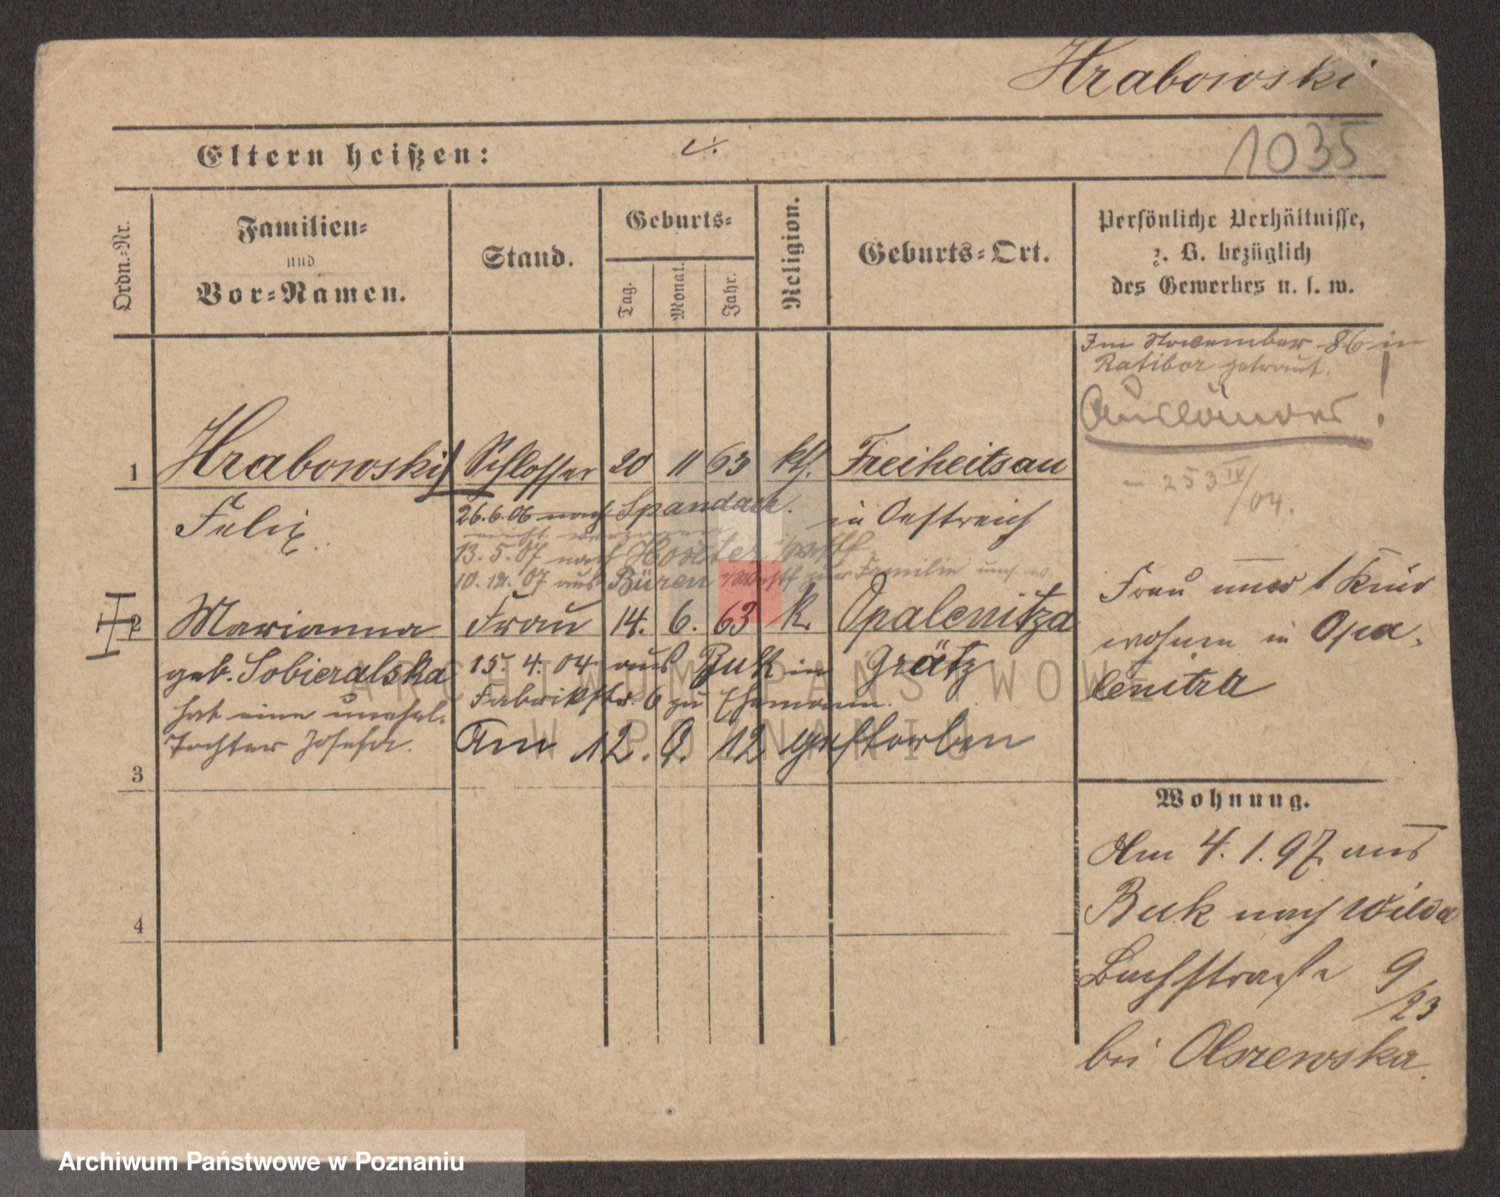 Hrabowski
1035
Eltern heißen: v.
Ordn.-Nr.
Familien-
und
Vor-Namen.
Stand.
Geburts-
Tag.
Monat.
Jahr.
Religion.
Geburts-Ort.
Persönliche Verhältnisse,
z. B. bezüglich
des Gewerbes u. s. w.
Im November 86 in
Ratibor getraut.
Ausländer!
253 IV/04.
1 Hrabowski Schlosser 20 11 63 kth. Freiheitsau
Felix
26.6.06 nach Spandau.
in Oestreich
13.5.07 nach Höxter i/Westf
10.12.07 aus Büren i/Westf zur Familie
2 Marianna Frau 14. 6. 63 k. Opalenitza
geb. Sobieralska 15.4.04 aus Buk in Grätz
hat eine unehel. Fabrikstr. 6 zu Ehemann.
Tochter Josefa. Am 12.9.12 gestorben
3
4
Frau und 1 Kind
wohnen in Opa-
lenitza
Wohnung.
Am 4.1.97 aus
Buk nach Wilda
Bachstraße 9/23
bei Olszewska.
ARCHIWUM PAŃSTWOWE
W POZNANIU
Archiwum Państwowe w Poznaniu